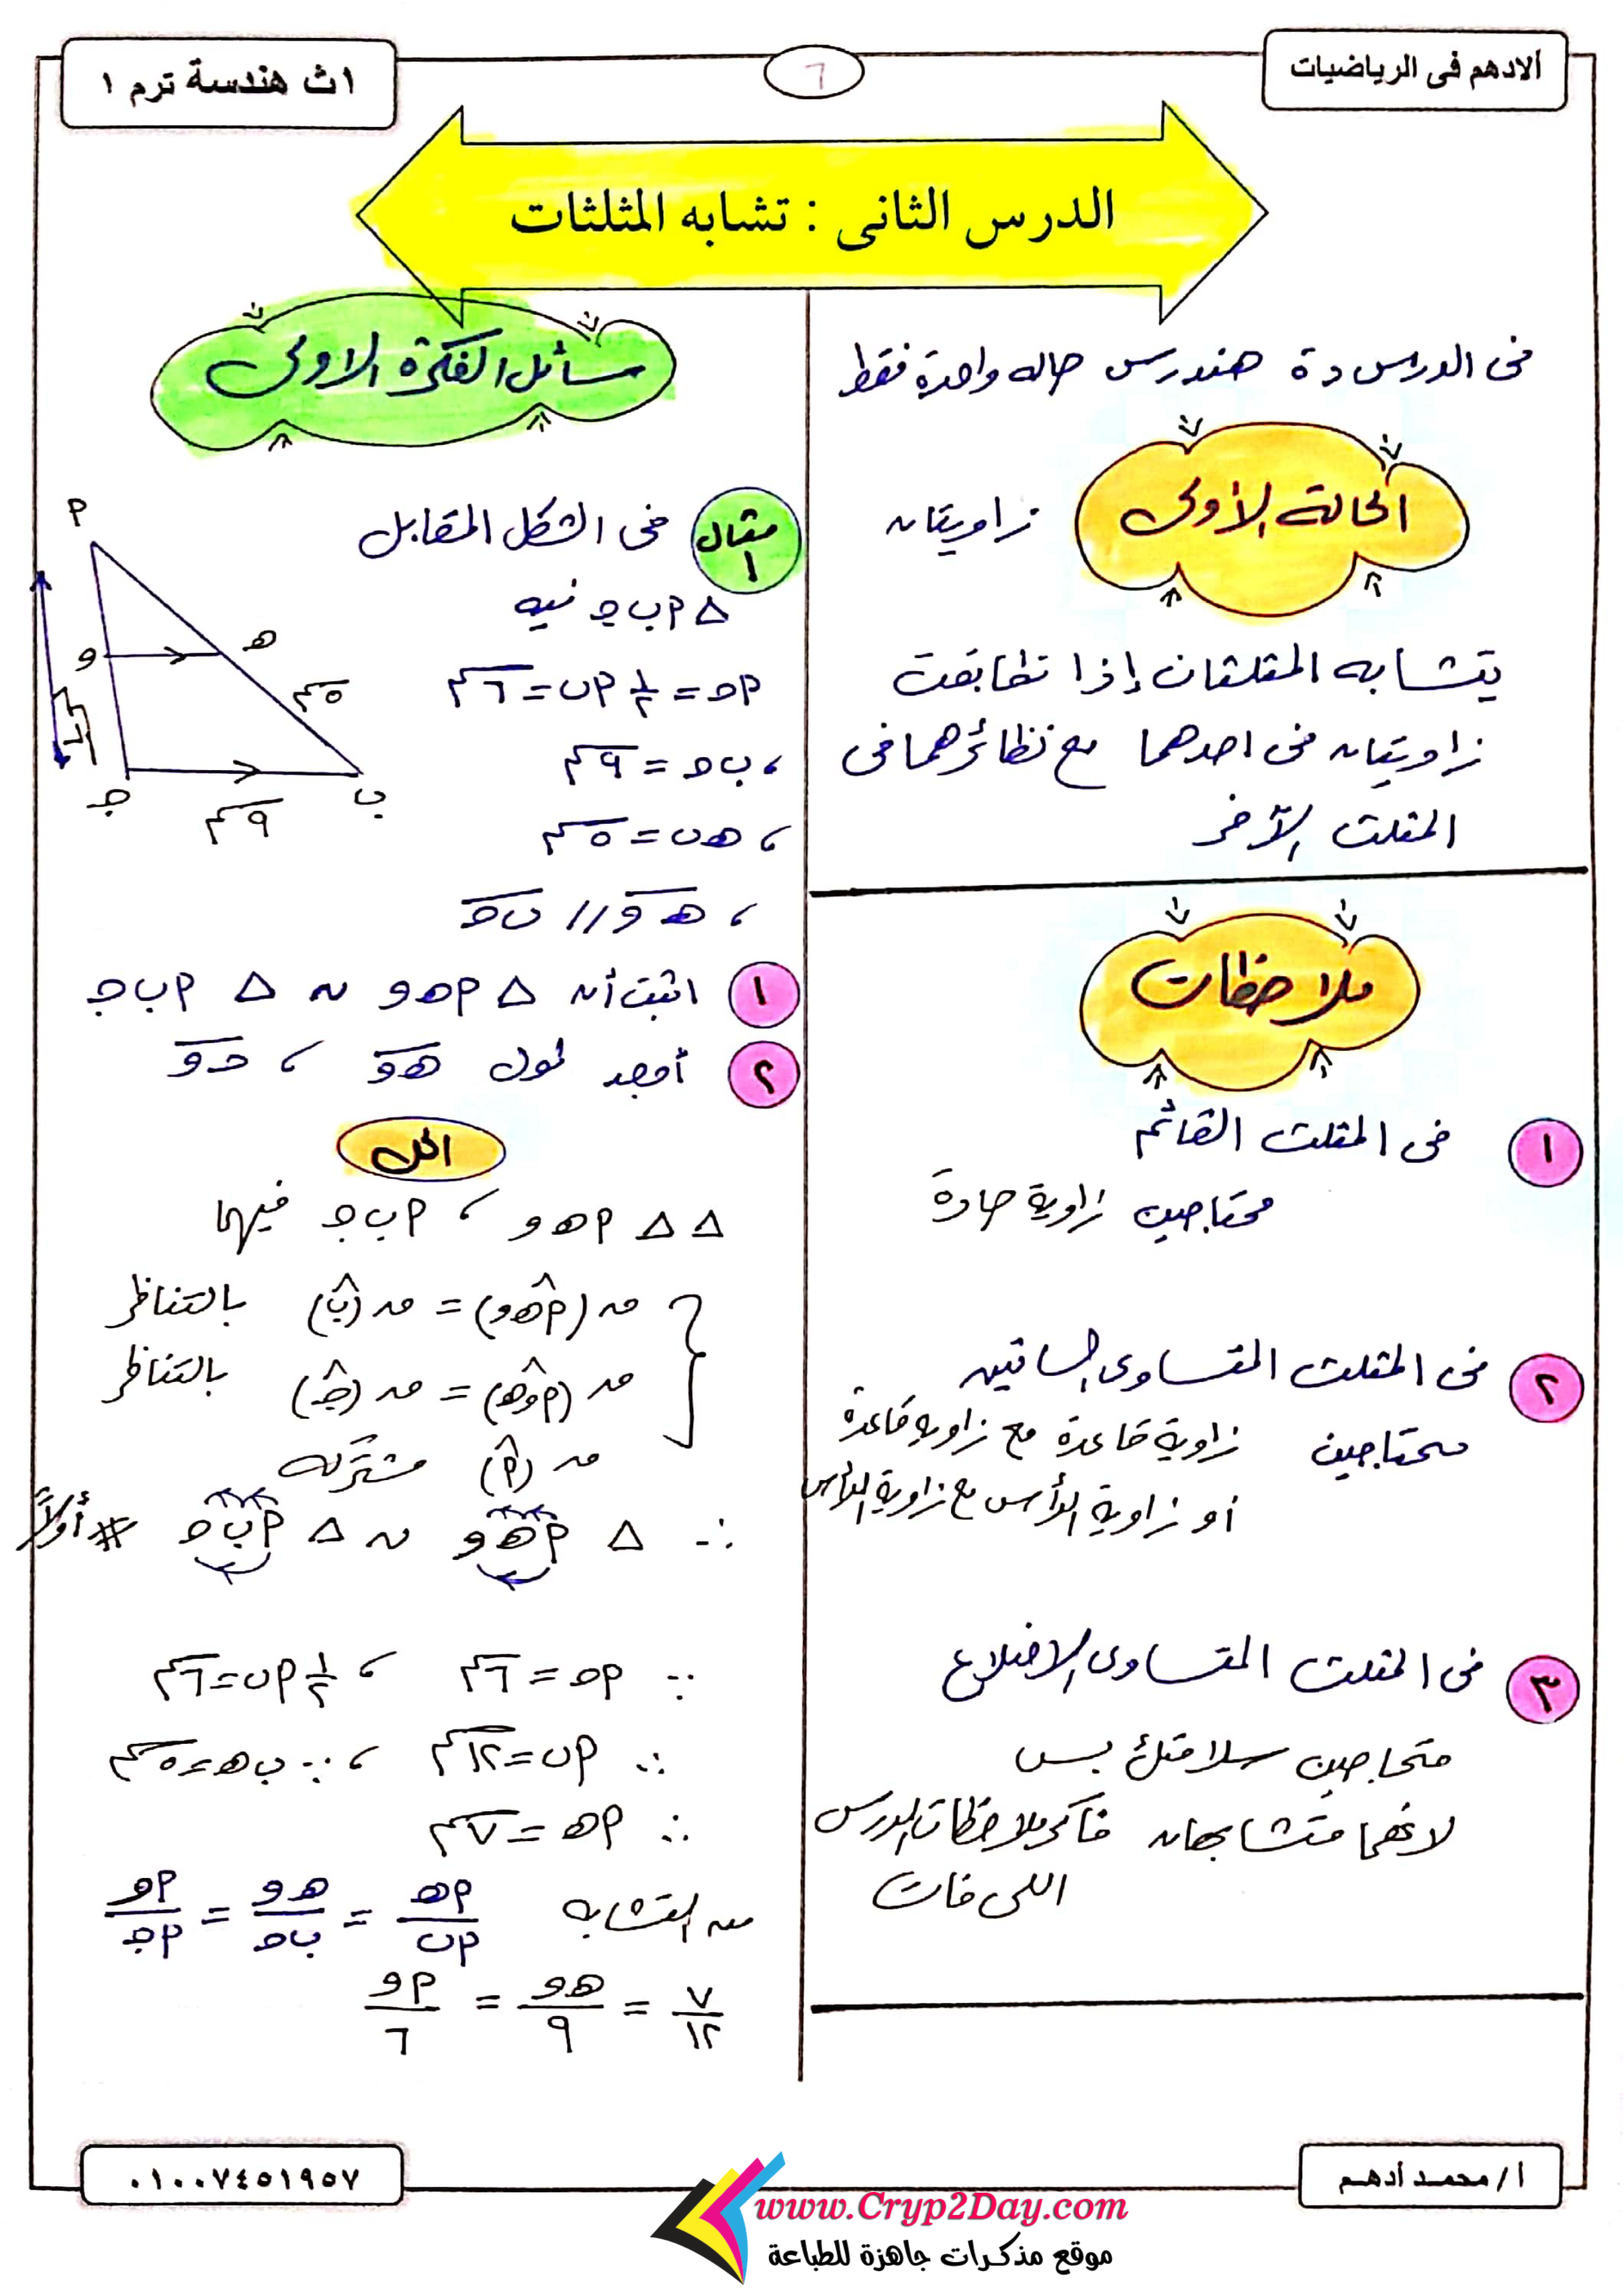 ألادهم فى الرياضيات
٦
١ث هندسة ترم ١
الدرس الثانى : تشابه المثلثات
فى الدرس دة هندرس حاله واحدة فقط
الحالة الأولى
زاويتان
يتشابه المثلثان إذا تطابقت
زاويتان فى احدهما مع نظائرهما فى
المثلث الآخر
ملاحظات
١ فى المثلث القائم
محتاجين زاوية حادة
٢ فى المثلث المتساوى الساقين
محتاجين زاوية قاعدة مع زاوية قاعدة
أو زاوية الرأس مع زاوية الرأس
٣ فى المثلث المتساوى الاضلاع
محتاجين سلامتك بس
لانهما متشابهان فاكر ملاحظات الدرس
اللى فات
مسائل الفكرة الاولى
مثال ١ فى الشكل المقابل
△ أ ب جـ فيه
أ جـ = ١/٢ أ ب = ٦ سم
، ب جـ = ٩ سم
، هـ ب = ٥ سم
، هـ و // ب جـ
أ
و
هـ
٥ سم
٦ سم
جـ
ب
٩ سم
١ اثبت أن △ أ هـ و ~ △ أ ب جـ
٢ أوجد طول هـ و ، جـ و
الحل
△ △ أ هـ و ، أ ب جـ فيهما
ق (أ هـ و) = ق (ب) بالتناظر
ق (أ و هـ) = ق (جـ) بالتناظر
ق (أ) مشتركه
∴ △ أ هـ و ~ △ أ ب جـ # أولاً
∵ أ جـ = ٦ سم ، ١/٢ أ ب = ٦ سم
∴ أ ب = ١٢ سم ، ∵ ب هـ = ٥ سم
∴ أ هـ = ٧ سم
من التشابه أ هـ/أ ب = هـ و/ب جـ = أ و/أ جـ
٧/١٢ = هـ و/٩ = أ و/٦
أ / محمد أدهم
٠١٠٠٧٤٥١٩٥٧
www.Cryp2Day.com
موقع مذكرات جاهزة للطباعة